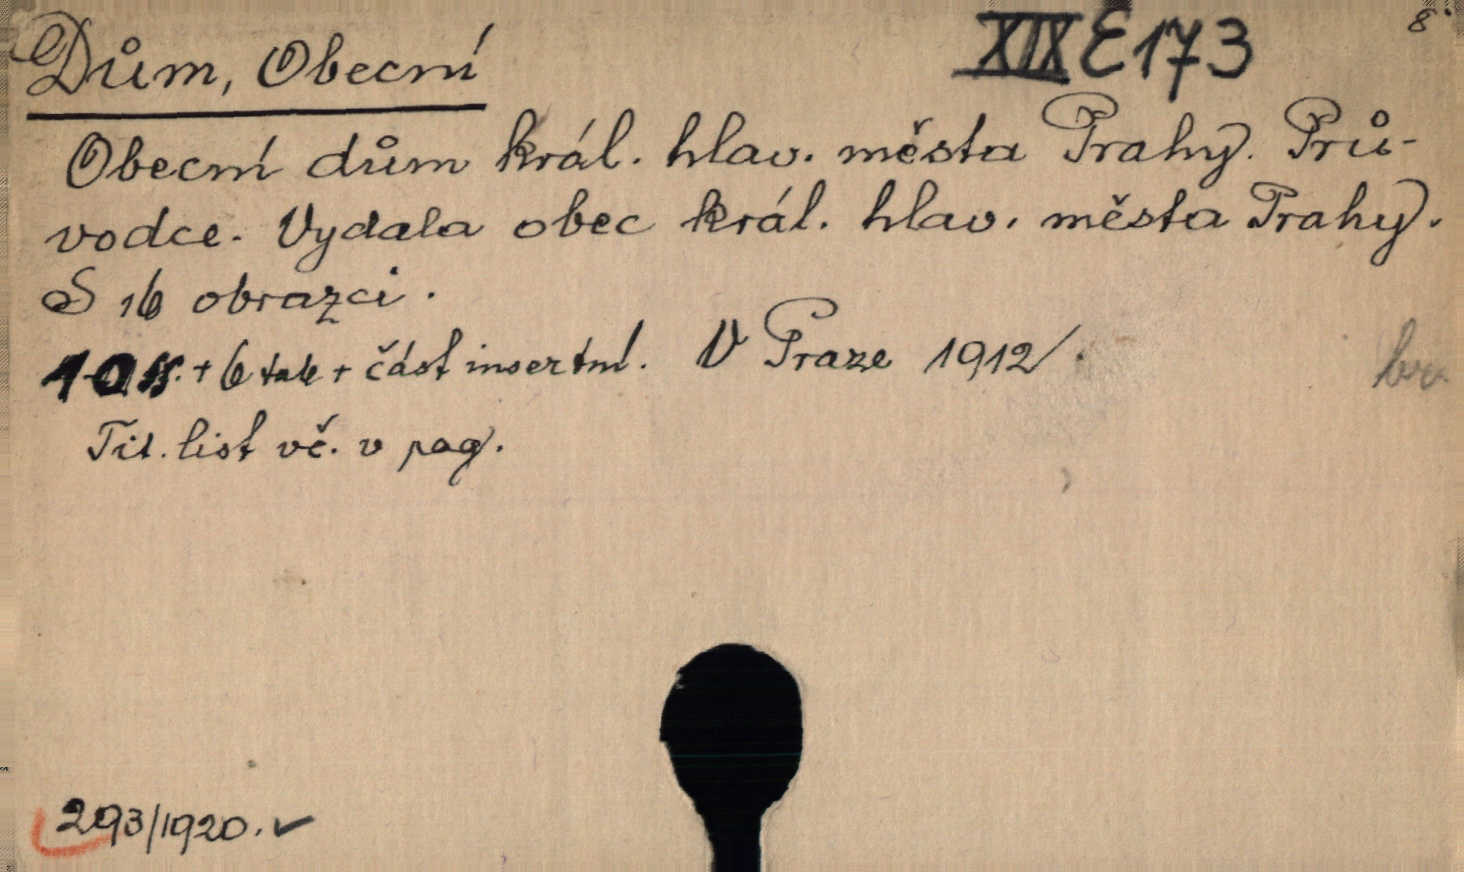 8°
Dům, Obecní
XIX E 173
Obecní dům král. hlav. města Prahy. Prů-
vodce. Vydala obec král. hlav. města Prahy.
S 16 obrazci.
+ 6 tab + část insertní. V Praze 1912.
br.
Tit. list vč. v pag.
293/1920. ✓